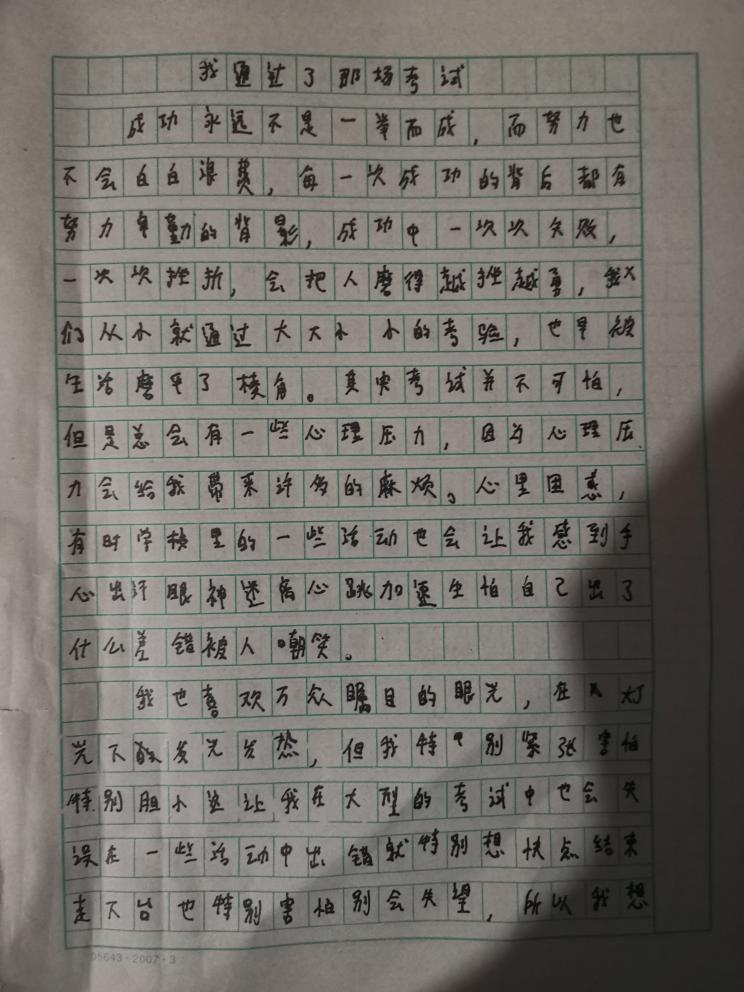 我通过了那场考试
成功永远不是一举而成，而努力也
不会白白浪费，每一次成功的背后都有
努力辛勤的背影，成功中一次次失败，
一次次挫折，会把人磨得越挫越勇，我
们从小就通过大大小小的考验，也早被
生活磨平了棱角。其实考试并不可怕，
但是总会有一些心理压力，因为心理压
力会给我带来许多的麻烦。心里困惑，
有时学校里的一些活动也会让我感到手
心出汗眼神迷离心跳加速生怕自己出了
什么差错被人嘲笑。
我也喜欢万众瞩目的眼光，在灯
光下散发光发热，但我特别紧张害怕
特别胆小这让我在大型的考试中也会失
误在一些活动中出错就特别想快点结束
走下台也特别害怕别会失望，所以我想
05643·2007·3